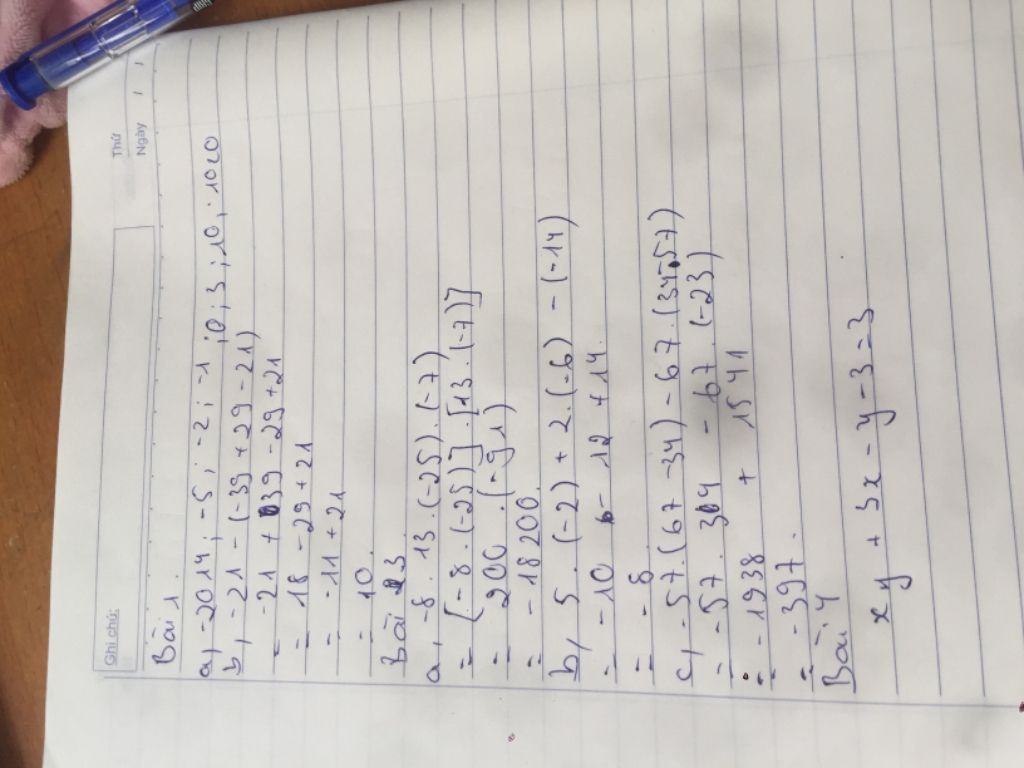 Ghi chú:
Thứ
Ngày
Bài 1.
a, -2014; -5; -2; -1; 0; 3; 10; 1020
b, -21 - (-39 + 29 - 21)
= -21 + 39 - 29 + 21
= 18 - 29 + 21
= -11 + 21
= 10.
Bài 3.
a, -8. 13. (-25). (-7)
= [-8. (-25)]. [13. (-7)]
= 200. (-91)
= -18200.
b, 5. (-2) + 2. (-6) - (-14)
= -10 - 12 + 14.
= -8.
c, -57. (67 - 34) - 67. (34-57)
= -57. 34 - 67. (-23)
= -1938 + 1541
= -397.
Bài 4
xy + 3x - y - 3 = 3